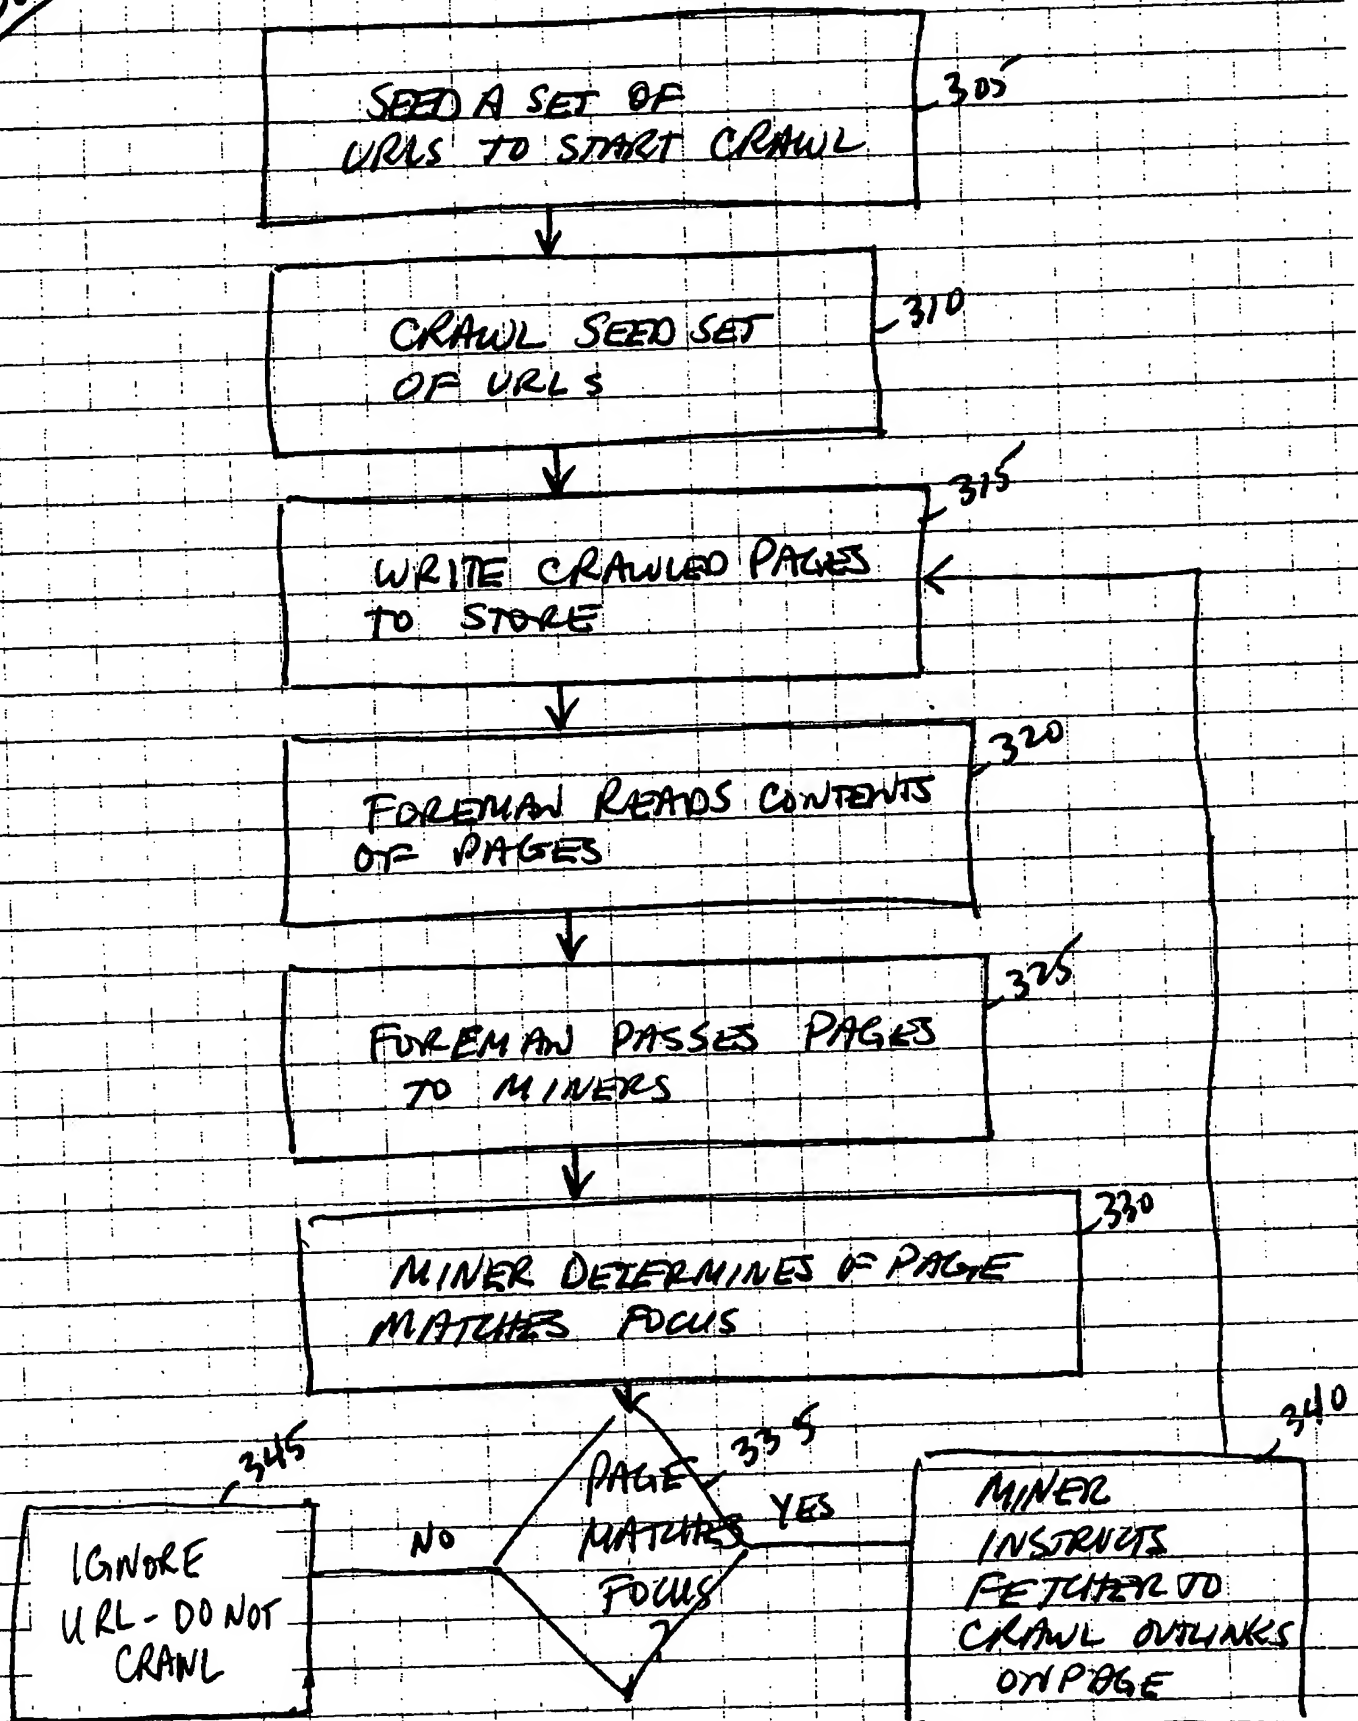 SEED A SET OF
URLS TO START CRAWL
305
CRAWL SEED SET
OF URLS
310
315
WRITE CRAWLED PAGES
TO STORE
320
FOREMAN READS CONTENTS
OF PAGES
325
FOREMAN PASSES PAGES
TO MINERS
330
MINER DETERMINES IF PAGE
MATCHES FOCUS
345
IGNORE
URL - DO NOT
CRAWL
NO
335
PAGE
MATCHES
FOCUS
?
YES
340
MINER
INSTRUCTS
FETCHER TO
CRAWL OUTLINKS
ON PAGE